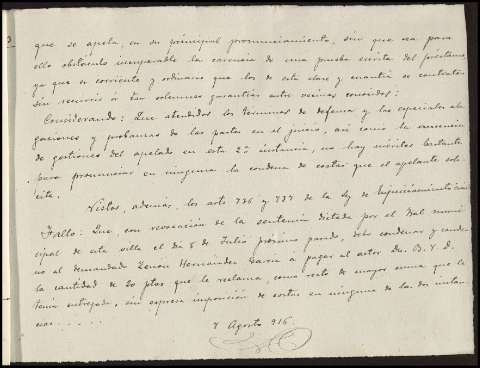 que se apela, en su principal pronunciamiento, sin que sea para
ello obstáculo insuperable la carencia de una prueba escrita del préstamo,
ya que es corriente y ordinario que los de esta clase y cuantía se contraten
sin recurrir á tan solemnes garantías entre vecinos conocidos:
Considerando: Que atendidos los términos de defensa y las especiales ale
gaciones y probanzas de las partes en el juicio, así como la ausencia
de gestiones del apelado en esta 2ª instancia, no hay méritos bastante
para pronunciar en ninguna la condena de costas que el apelante soli
cita.
Vistos, además, los arts 736 y 737 de la Ley de Enjuiciamiento
Fallo: Que, con revocación de la sentencia dictada por el Bal muni
cipal de esta villa el día 8 de Julio próximo pasado, debo condenar y conde
no al demandado Zenón Hernández García á pagar al actor Dn. B. Y. D.
la cantidad de 20 ptas que le reclama, como resto de mayor suma que le
tenía entregada, sin expresa imposición de costas en ninguna de las dos instan
cias......
8 Agosto 916.